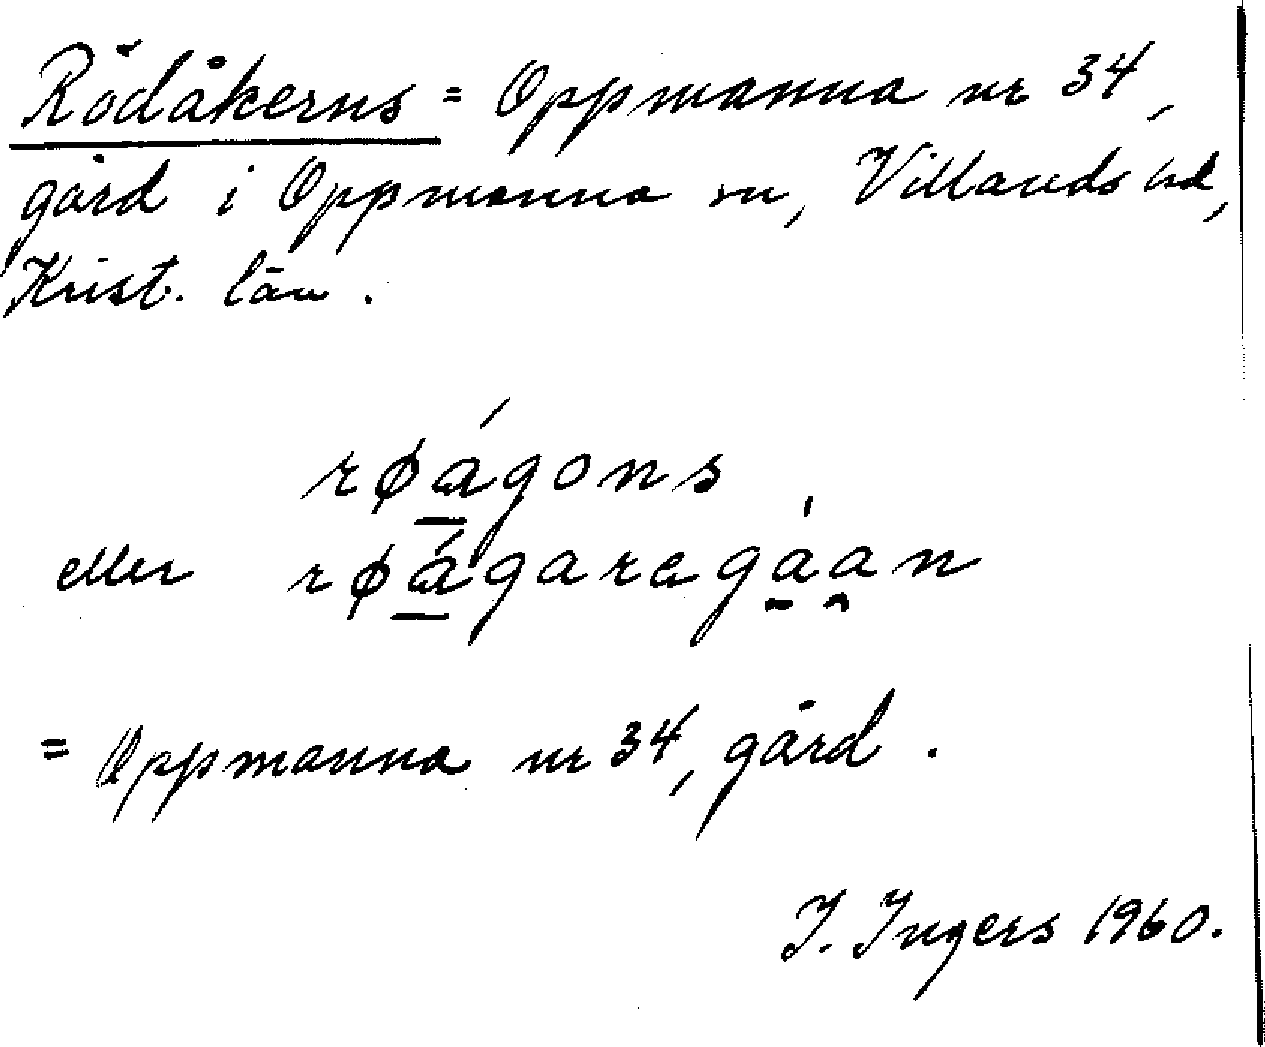 Rödåkerns = Oppmanna nr 34,
gård i Oppmanna sn, Villands hd,
Krist. län.
røágons
eller røágaragáan
= Oppmanna nr 34, gård.
I. Ingers 1960.